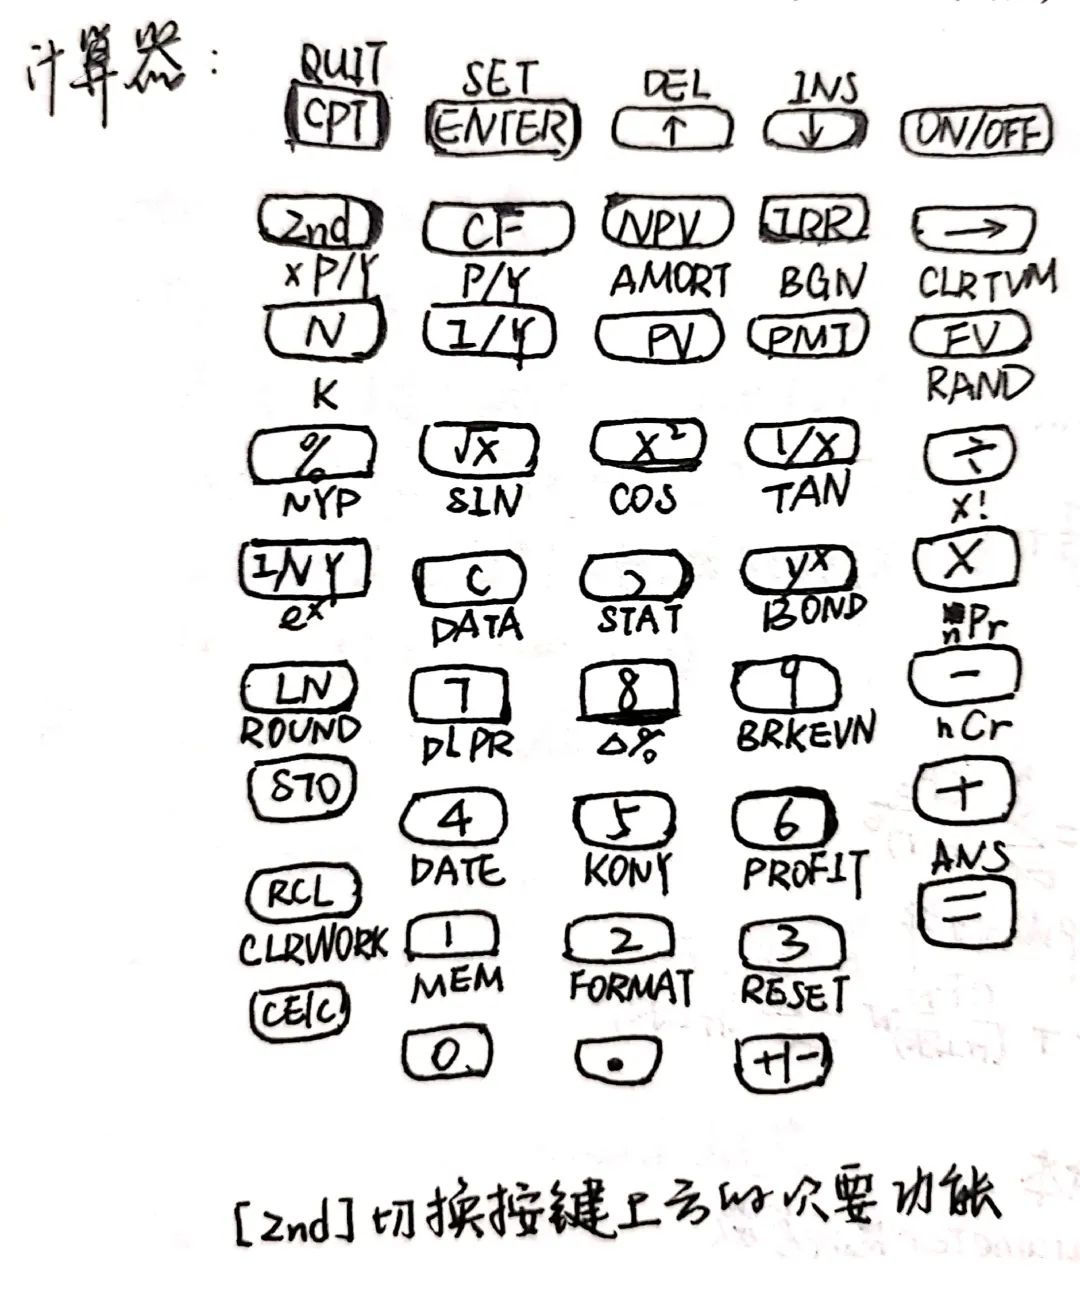 计算器：
QUIT SET DEL INS
CPT ENTER ↑ ↓ ON/OFF
2nd CF NPV IRR →
xP/Y P/Y AMORT BGN CLRTVM
N I/Y PV PMT FV
K RAND
% √x x² 1/x ÷
NYP SIN COS TAN x!
INY ( ) yˣ X
eˣ DATA STAT BOND nPr
LN 7 8 9 −
ROUND DLPR △% BRKEVN nCr
STO 4 5 6 +
DATE KONY PROFIT ANS
RCL 1 2 3 =
CLRWORK MEM FORMAT RESET
CE/C 0 . +/-
[2nd]切换按键上方的次要功能